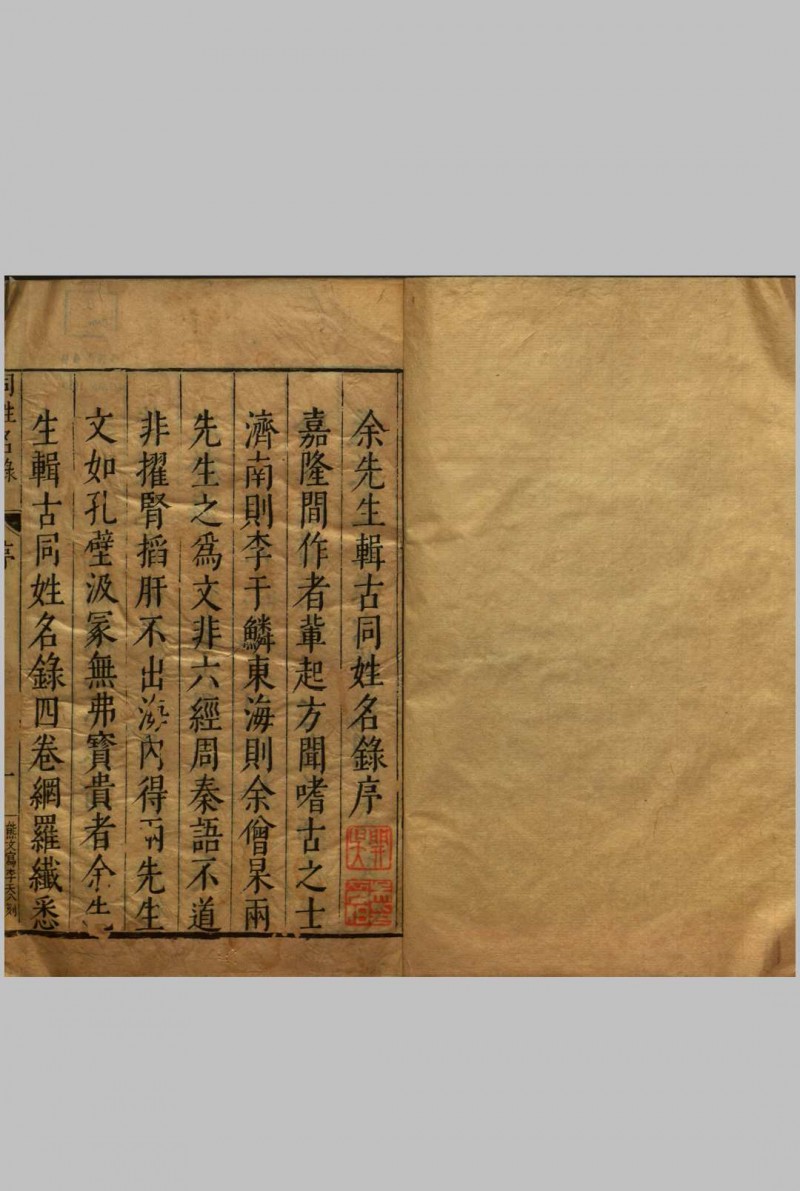 余先生輯古同姓名錄序
嘉隆間作者輩起方聞嗜古之士
濟南則李于鱗東海則余僧杲兩
先生之爲文非六經周秦語不道
非擢腎搯肝不出海內得兩先生
文如孔壁汲冢無弗寶貴者余先
生輯古同姓名錄四卷網羅纖悉
同姓名錄
序
一
熊文寫李天刻